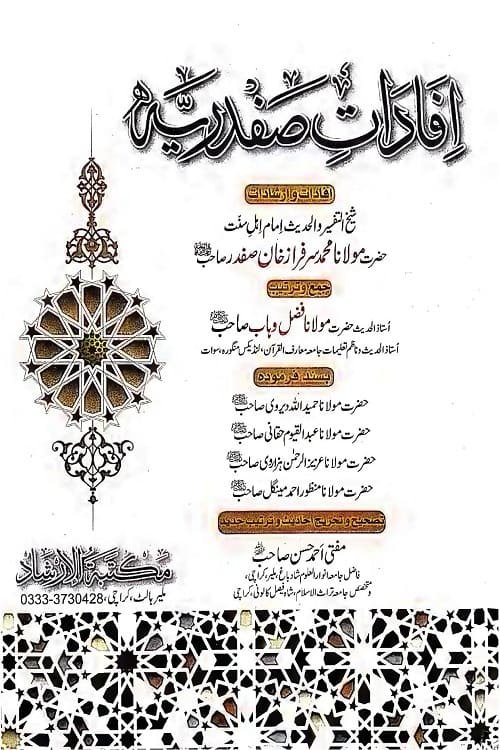 افادات صفدریہ
افادات و ارشادات
شیخ التفسیر والحدیث امام اہل سنت
حضرت مولانا محمد سرفراز خان صفدر صاحب
جمع و ترتیب
استاذ الحدیث حضرت مولانا فضل وہاب صاحب
استاذ الحدیث و ناظم تعلیمات جامعہ معارف القرآن، لنڈیکس منگورہ، سوات
پسند فرمودہ
حضرت مولانا حمید اللہ دیروی صاحب
حضرت مولانا عبدالقیوم حقانی صاحب
حضرت مولانا عزیز الرحمٰن ہزاروی صاحب
حضرت مولانا منظور احمد مینگل صاحب
تصحیح و تخریج احادیث و ترتیب جدید
مفتی احمد حسن صاحب
فاضل جامعہ انوار العلوم شاد باغ، ملیر، کراچی،
و متخصص جامعہ تراث الاسلام، شاہ فیصل کالونی، کراچی
مکتبۃ الارشاد
ملیر ہالٹ، کراچی، 0333-3730428